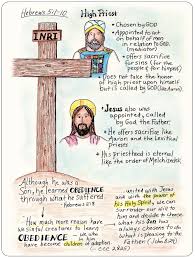 Hebrews 5:1-10
High Priest
INRI
• Chosen by GOD
• Appointed to act
on behalf of men
in relation to GOD.
(mediator)
• Offers sacrifice
for sins (for the
people & for himself)
• Does not take the honor
of high priest but is
called by GOD (like Aaron)
• Jesus also was
appointed, called
by God, the Father.
• He offers sacrifice like
Aaron and the Levitical
priests
• His priesthood is eternal
like the order of Melchizedek
Although he was a
Son, he learned OBEDIENCE
through what he suffered.
Hebrews 5:8
How much more reason have
we sinful creatures to learn
OBEDIENCE
become children of adoption
united with Jesus
and with the power of
his Holy Spirit, we can
surrender our will to
him and decide to
choose what his Son has
always chosen: to do
what is pleasing to the
Father (John 8:29)
- CCC 2825